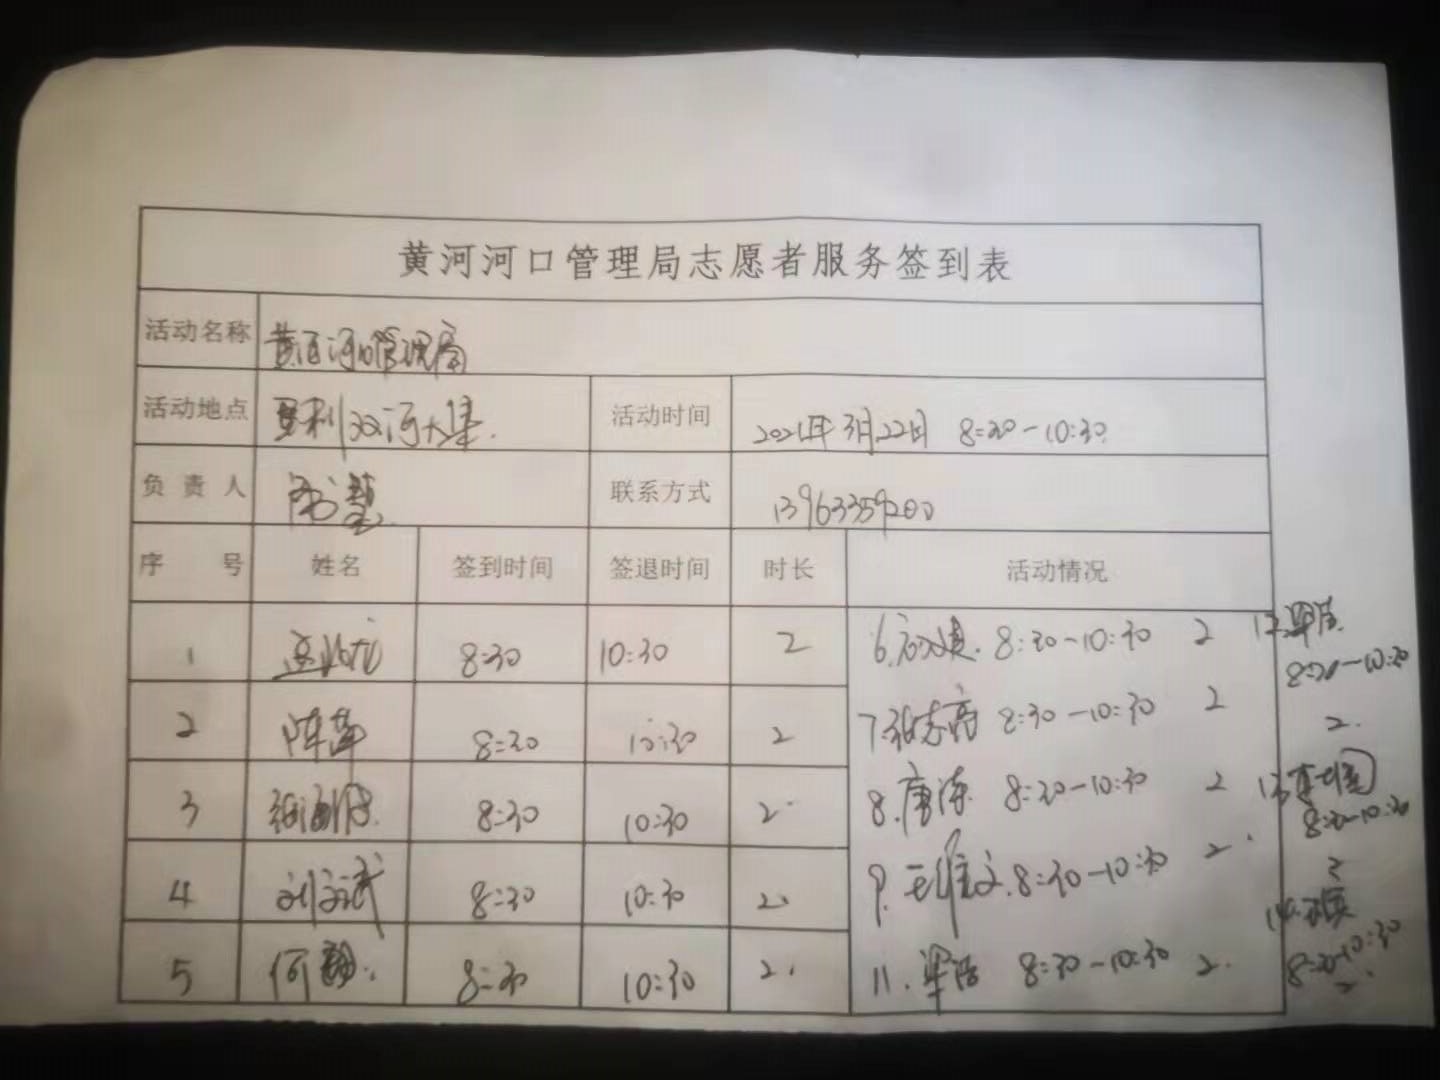 黄河河口管理局志愿者服务签到表
活动名称 黄河河口管理局
活动地点 垦利双河大集. 活动时间 2021年3月22日 8:30-10:30
负责人 联系方式 13963359200
序号 姓名 签到时间 签退时间 时长 活动情况
1 8:30 10:30 2 6. 8:30-10:30 2
2 陈萍 8:30 10:30 2 7.张志高 8:30-10:30 2
3 8:30 10:30 2 8.唐涛 8:30-10:30 2
4 刘文武 8:30 10:30 2 9.王维文.8:30-10:30 2
5 何 8:30 10:30 2 11. 8:30-10:30 2
12.
8:30-10:30
2
13.
8:30-10:30
2
14.
8:30-10:30
2